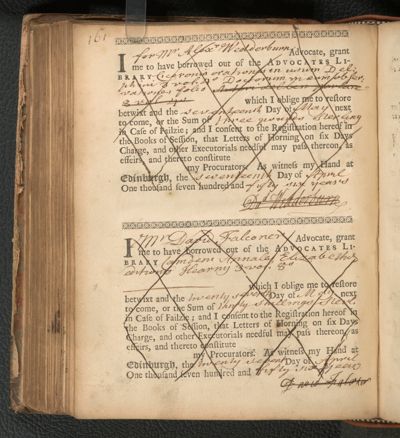 161
for Mr Alexr Wedderburn
I Advocate, grant
me to have borrowed out of the ADVOCATES LI-
BRARY Ciceronis orationes in usum Delphini
folio
which I oblige me to restore
betwixt and the seventeenth Day of May next
to come, or the Sum of three pounds Sterling
in Case of Failzie; and I consent to the Registration hereof in
the Books of Session, that Letters of Horning on six Days
Charge, and other Executorials needful may pass thereon, as
effeirs, and thereto constitute
my Procurators. As witness my Hand at
Edinburgh, the seventeenth Day of April
One thousand seven hundred and fifty six years
Wedderburn
I Mr David Falconer Advocate, grant
me to have borrowed out of the ADVOCATES LI-
BRARY Camdeni Annales Elizabethae
Hearny 2 vol. 8vo
which I oblige me to restore
betwixt and the twenty seventh Day of May next
to come, or the Sum of thirty shillings Sterl.
in Case of Failzie; and I consent to the Registration hereof in
the Books of Session, that Letters of Horning on six Days
Charge, and other Executorials needful may pass thereon, as
effeirs, and thereto constitute
my Procurators. As witness my Hand at
Edinburgh, the twenty seventh Day of April
One thousand seven hundred and fifty six years
David Falconer